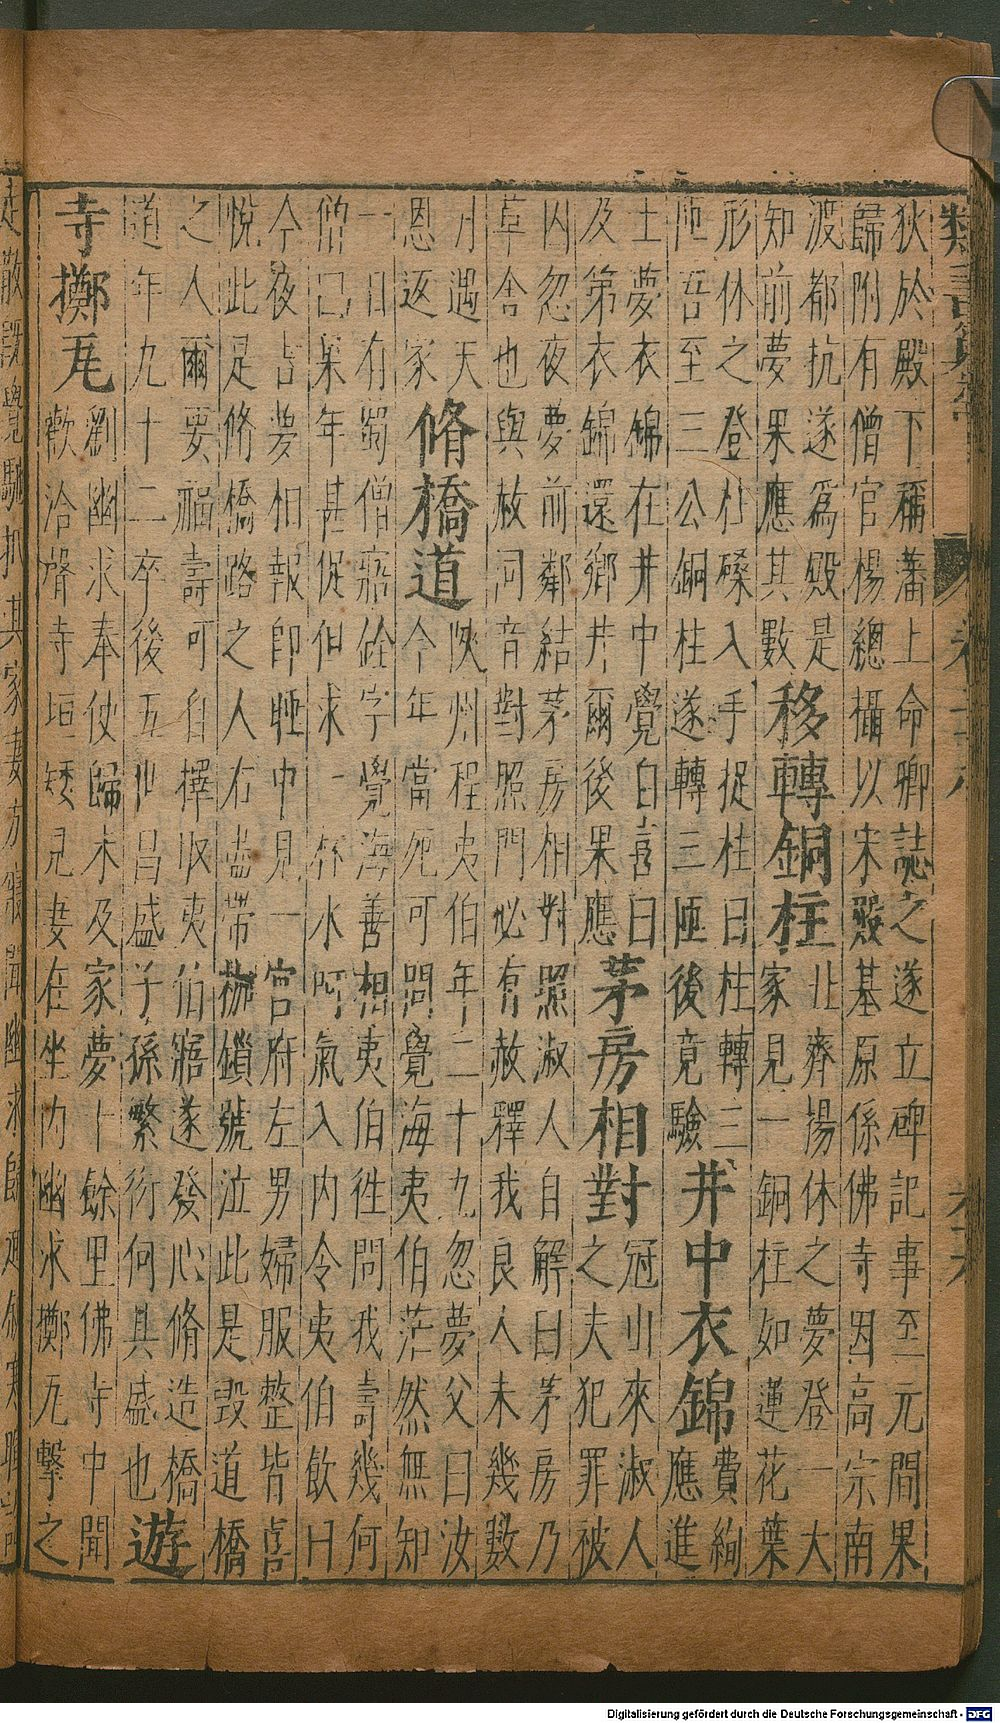 狄於殿下稱藩上命卿誌之遂立碑記事至元間果
歸附有僧官楊總攝以宋殿基原係佛寺因高宗南
渡都抗遂爲殿是
知前夢果應其數
移轉銅柱
北齊揚休之夢登一大
家見一銅柱如蓮花葉
形休之登柱磉入手捉柱曰柱轉三
匝吾至三公銅柱遂轉三匝後竟驗
井中衣錦
費絢
應進
士夢衣錦在井中覺自喜曰
及第衣錦還鄉井爾後果應
茅房相對
冠山來淑人
之夫犯罪被
囚忽夜夢前鄰結茅房相對照淑人自解曰茅房乃
草舍也與赦同音對照門必有赦釋我良人未幾數
月遇天
恩返家
脩橋道
陝州程夷伯年二十九忽夢父曰汝
今年當死可問覺海夷伯茫然無知
一日有蜀僧寤於字覺海善相夷伯徃問我壽幾何
僧曰某年甚促但求一杯水呵氣入內令夷伯飮曰
今夜吉夢相報卽睡中見一官府左男婦服整皆喜
悅此是脩橋路之人右盡帶枷鎖號泣此是毀道橋
之人爾要福壽可自擇收夷伯寤遂發心脩造橋
道年九十二卒後五世昌盛子孫繁衍何其盛也
遊
寺擲瓦
劉幽求奉使歸未及家夢十餘里佛寺中聞
歡洽聲寺垣矮見妻在坐內幽求擲瓦擊之
Digitalisierung gefördert durch die Deutsche Forschungsgemeinschaft - DFG